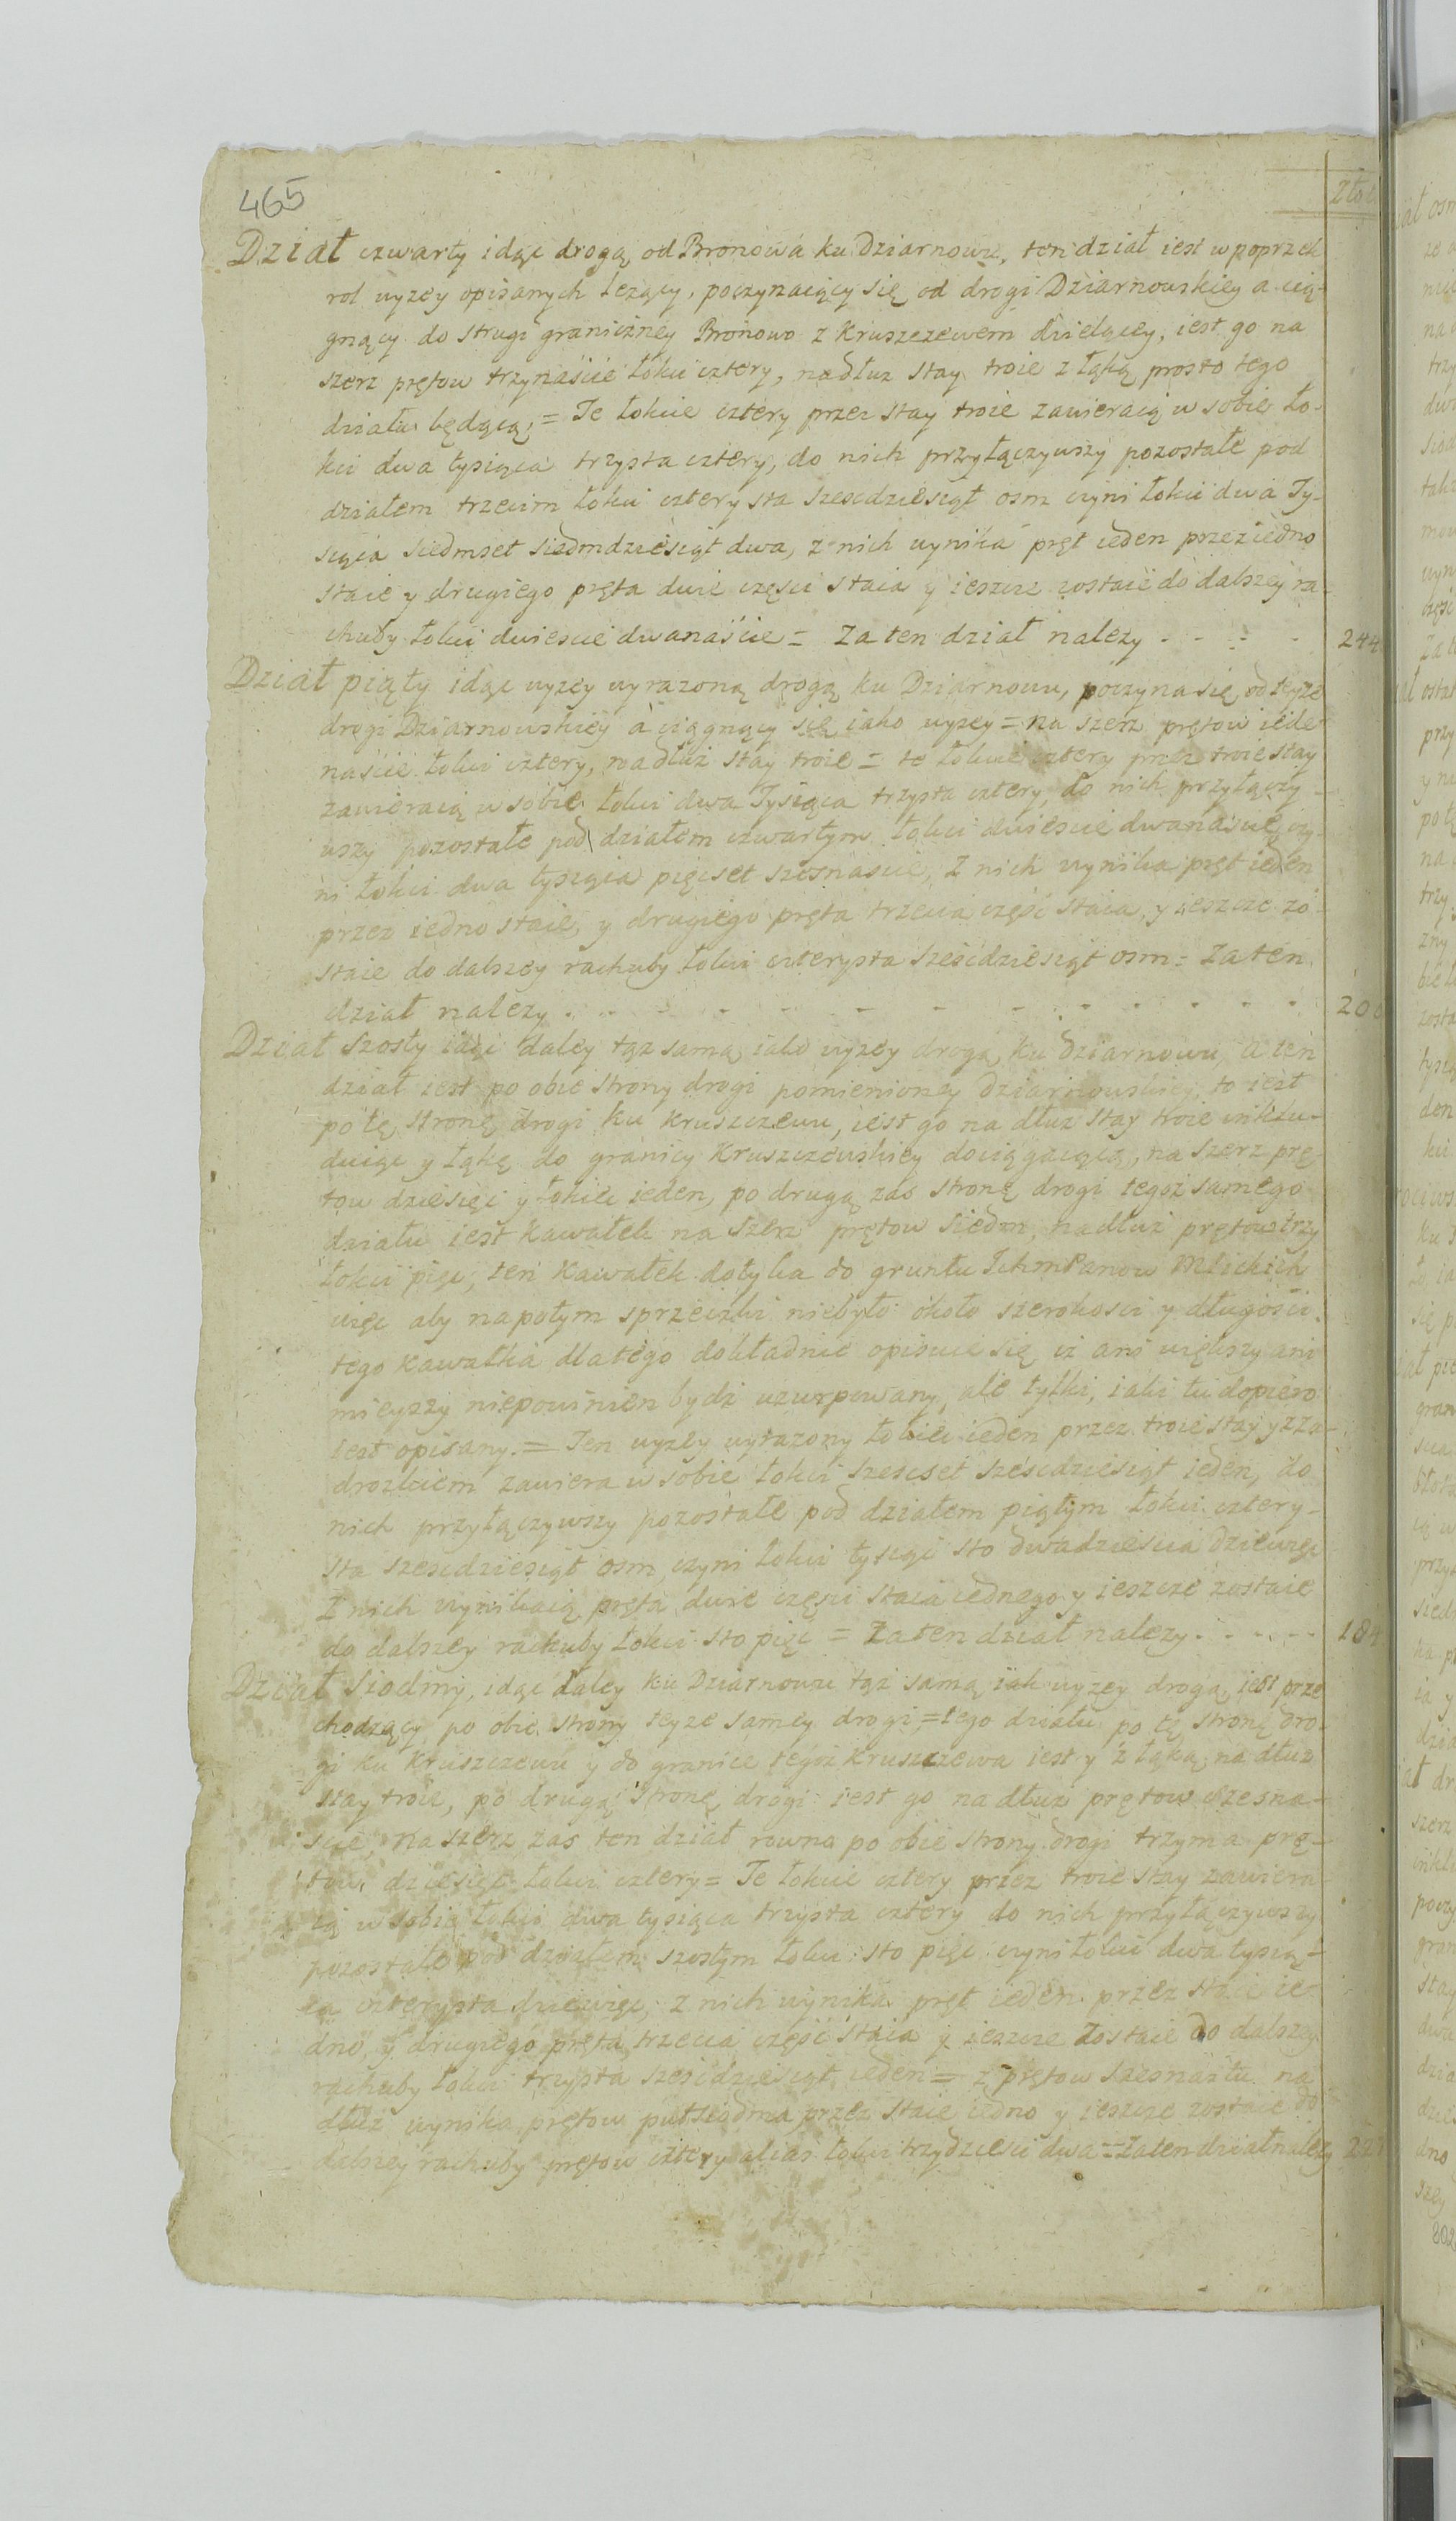 465
Zło
Dział czwarty idąc drogą od Bronowa ku Dziarnowu, ten dział iest w poprzek
rol wyzey opisanych lezący, poczynaiący się od drogi Dziarnowskiey a cią-
gnący do strugi graniczney Bronowo z Kruszczewem dzielącey, iest go na
szerz prętow trzynaście łokci cztery, nadłuz stay troie z łąką prosto tego
działu będącą, = Te łokcie cztery przez stay troie zawieraią w sobie ło-
kci dwa tysiąca trzysta cztery, do nich przyłączywszy pozostałe pod
działem trzecim łokci cztery sta szescdziesiąt osm czyni łokci dwa Ty-
siąca siedmset siedmdziesiąt dwa, z nich wynika pręt ieden przez iedno
staie y drugiego pręta dwie częsci staia y ieszcze zostaie do dalszey ra-
chuby łokci dwiescie dwanaście = Za ten dział nalezy - - - - 244
Dział piąty idąc wyzey wyrazoną drogą ku Dziarnowu, poczyna się od teyze
drogi Dziarnowskiey a ciągnący się iako wyzey = na szerz prętow iede
naście łokci cztery, nadłuż stay troie = te łokcie cztery przez troie stay
zawieraią w sobie łokci dwa Tysiąca trzysta cztery, do nich przyłączy-
wszy pozostałe pod działem czwartym łokci dwiescie dwanaście, czy-
ni łokci dwa tysiąca pięcset szesnascie, z nich wynika pręt ieden
przez iedno staie, y drugiego pręta trzecia część staia, y ieszcze zo-
staie do dalszey rachuby łokci czterysta sześćdziesiąt osm = Za ten
dział nalezy - - - - - - - - - - - 20
Dział Szosty idąc daley tąz samą iako wyzey drogą ku Dziarnowu, a ten
dział iest po obie strony drogi pomienioney Dziarnowskiey, to iest
po tę stronę drogi ku Kruszczewu, iest go na dłuz stay troie inklu-
duiąc y łąkę do granicy Kruszczewskiey dociągaiącą, na szerz prę-
tow dziesięć y łokieć ieden, po drugą zas stronę drogi tegoż samego
działu iest kawałek na szerz prętow siedm, nadłuż prętow trzy
łokci pięc, ten kawałek dotyka do gruntu Ichm Panow Mlickich
więc aby napotym sprzeczki niebyło około szerokosci y długości
tego kawałka dlatego dokładnie opisuie się iz ani większy ani
mieyszy niepowinien bydz uzurpowany, ale tylki, iaki tu dopiero
iest opisany. = Ten wyzey wyrazony łokieć ieden przez troie stay y z za-
drozkiem zawiera w sobie łokci szescset sześcdziesiąt ieden, do
nich przyłączywszy pozostałe pod działem piątym łokci cztery-
sta szescdziesiąt osm, czyni łokci tysiąc sto dwadziescia dziewięc
z nich wynikaią pręta dwie częsci staia iednego y ieszcze zostaie
do dalszey rachuby łokci sto pięc = Za ten dział nalezy - - - - 184
Dział Siodmy, idąc daley ku Dziarnowu tąz samą iak wyzey drogą, iest prze
chodzący po obie strony teyze samey drogi, = tego działu po tę stronę dro-
gi ku Kruszczewu y do granice tegoż Kruszczewa iest y z łąką na dłuz
stay troie, po drugą stronę drogi iest go na dłuz prętow szesna-
scie, na szerz zas ten dział rowno po obie strony drogi trzyma prę-
tow dziesięć łokci cztery = Te łokcie cztery przez troie stay zawiera
ią w sobie łokci dwa tysiąca trzysta cztery do nich przyłączywszy
pozostałe pod działem szostym łokci sto pięc czyni łokci dwa tysią-
ca czterysta dziewięc, z nich wynika pręt ieden przez staie ie-
dno, y drugiego pręta trzecia część staia y ieszcze zostaie do dalszey
rachuby łokci trzysta sześcdziesiąt ieden = z prętow szesnastu na
dłuz wynika prętow pułsiodma przez staie iedno y ieszcze zostaie do
dalszey rachuby prętow cztery alias łokci trzydziesci dwa = Za ten dział nalezy